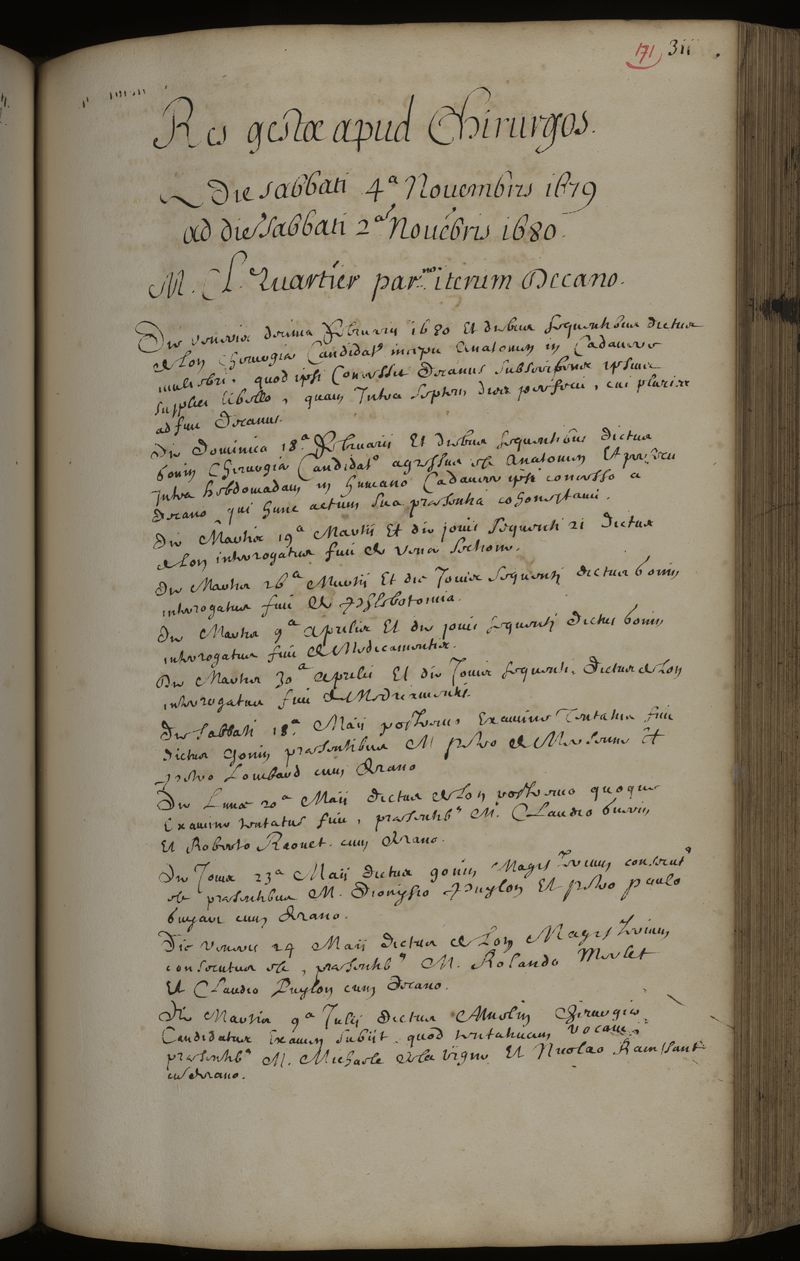 171 311
Res gestæ apud Chirurgos.
Die sabbati 4ª Nouembris 1679
ad diē sabbati 2ª Nouēbris 1680.
M. Cl. Quartier par iterum Decano.
Die veneris decima Februarij 1680 Et diebus sequentibus dictus
delon Chirurgiæ Candidatꝰ incepit Anatomen in Cadavere
muliebri, quod ipsi Concessit Decanus subscribens ipsius
supplici libello, quam Intra septem dies perfecit, cui pluries
adfuit Decanus.
Die Dominica 18ª Februarij Et diebus sequentibus dictus
bonin Chirurgiæ Candidatꝰ agressus est Anatomen Et perfecit
Intra hebdomadam in humano Cadavere ipsi concesso a
Decano, qui hunc actum sua præsentia cohonestavit.
Die Martis 19ª Martij Et die jouis sequenti 21 Dictus
delon interrogatus fuit de venæ sectione.
Die Martis 26ª Martij Et die Jouis sequenti dictus bonin
interrogatus fuit de Phlebotomia.
Die Martis 9ª Aprilis Et die jouis sequenti Dictus bonin
interrogatus fuit de Medicamentis.
Die Martis 30ª Aprilis Et die Jouis sequenti, Dictus delon
interrogatus fuit de Medicamentis.
Die sabbati 18ª Maij postremo Examine tentatus fuit
dictus præsentibus M petro de Et
petro Lombard cum Decano
Die Lunæ 20ª Maij dictus delon postremo quoque
Examine tentatus fuit, præsentibꝰ M. Claudio
Et Roberto cum Decano.
Die Jouis 23ª Maij dictus Magisterium consecutꝰ
est præsentibus M. Dionysio Puylon Et petro paulo
cum Decano.
Die veneris 24 Maij Dictus delon Magisterium
consecutus est, præsentibꝰ M. Rolando Merlet
Et Claudio Puylon cum Decano.
Die Martis 9ª Julij Dictus Chirurgiæ
Candidatus Examen subijt, quod tentativam vocant,
præsentibꝰ M. Michaele de la Vigne Et Nicolao Rainssant
cū decano.